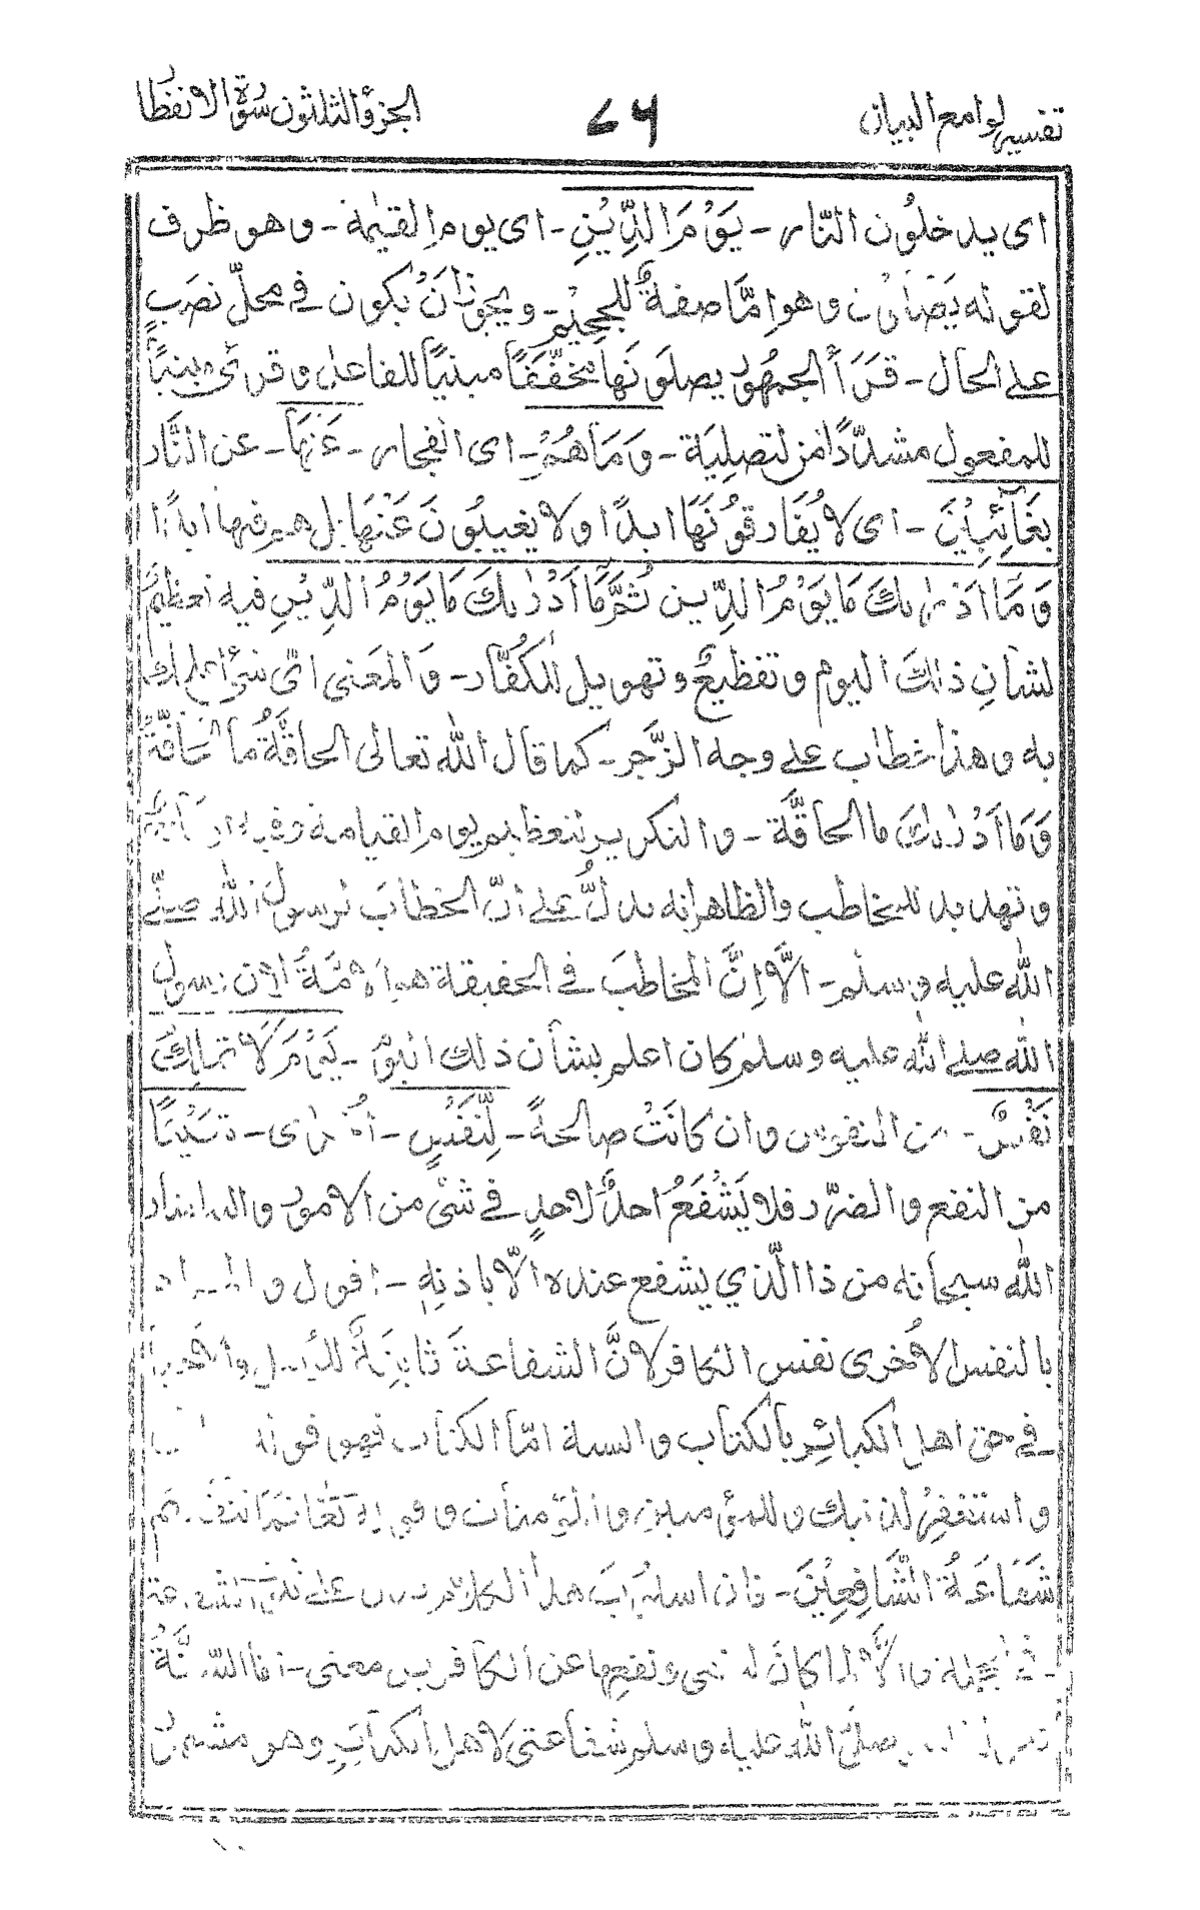 تفسير لوامع البيان
٧٦
الجزؤ الثلثون سورة الانفطار
اى يدخلُون النّار - يَوْمَ الدِّيْنِ - اى يوم القيٰمة - وهو ظرف
لقوله يَصْلَوْنَ وهو اِمَّا صفةٌ للجحيْم - ويجوزُ انْ يكون فى محلّ نصبٍ
على الحال - قَرَأَ الجمهُور يصلَونَها مخفّفًا مبنيًا للفاعل وقرئ مبنيًّا
للمفعول مشدّدًا من التصلِيَة - وَمَا هُمْ - اى الفجار - عَنْهَا - عن النَّار
بِغَائِبِيْنَ - اى لا يُفَارقُونَهَا ابدًا ولا يغيبُونَ عَنْهَا بل هم فيها ابدًا
وَمَا اَدْرٰىكَ مَا يَوْمُ الدِّيْنِ ثُمَّ مَا اَدْرٰىكَ مَا يَوْمُ الدِّيْنِ فيه تعظيمٌ
لشانِ ذٰلكَ اليوم وتفظيعٌ وتهويل للكُفّار - وَالمعَنى اىّ شئ اعلمك
به وهذا خطاب على وجه الزّجر - كما قال اللّٰه تعالى الحاقَّةُ ما الحَاقّةُ
وَمَا اَدْرٰىكَ ما الحاقَّة - والتكرير لتعظيم يوم القيامة وفيه
وتهديد للمخاطب والظاهر انه يدلُّ على انّ الخطاب لرسول اللّٰه صلى
اللّٰه عليه وسلم - الّا اِنَّ المخاطبَ فى الحقيقة هو الامّةُ لان رسول
اللّٰه صلى اللّٰه عليه وسلم كان اعلم بشأن ذلك اليوم - يَوْمَ لَا تملِكُ
نَفْسٌ - من النفوس وان كانَتْ صالحةً - لِنَفْسٍ - اُخرٰى - شَيْئًا
من النفع والضرّ فلا يَشْفَعُ احدٌ لاحدٍ فى شئ من الامور
اللّٰه سبحانه من ذا الّذي يشفع عنده الّا باذنِهٖ - اقول والمراد
بالنفس الاُخرى نفس الكافر لانَّ الشفاعة ثابتةٌ للرسل والاخيار
فى حق اهل الكبائِر بالكتاب والسنة امّا الكتاب فهو قوله
واستغفِرْ لذنبك وللمؤمنين والمؤمنات وقوله تعَالٰى فمَا تنفعهم
شَفَاعَةُ الشَّافِعِيْنَ - فان اسلوبَ هذا الكلام يدل على ثبوت الشفاعة
فى الجملة والّا لما كانَ لنفى نفعِها عن الكافرين معنى - امّا السّنّةُ
صلىّ اللّٰه عليه وسلم شفاعتى لاهل الكبآئِرِ وهو مشهور